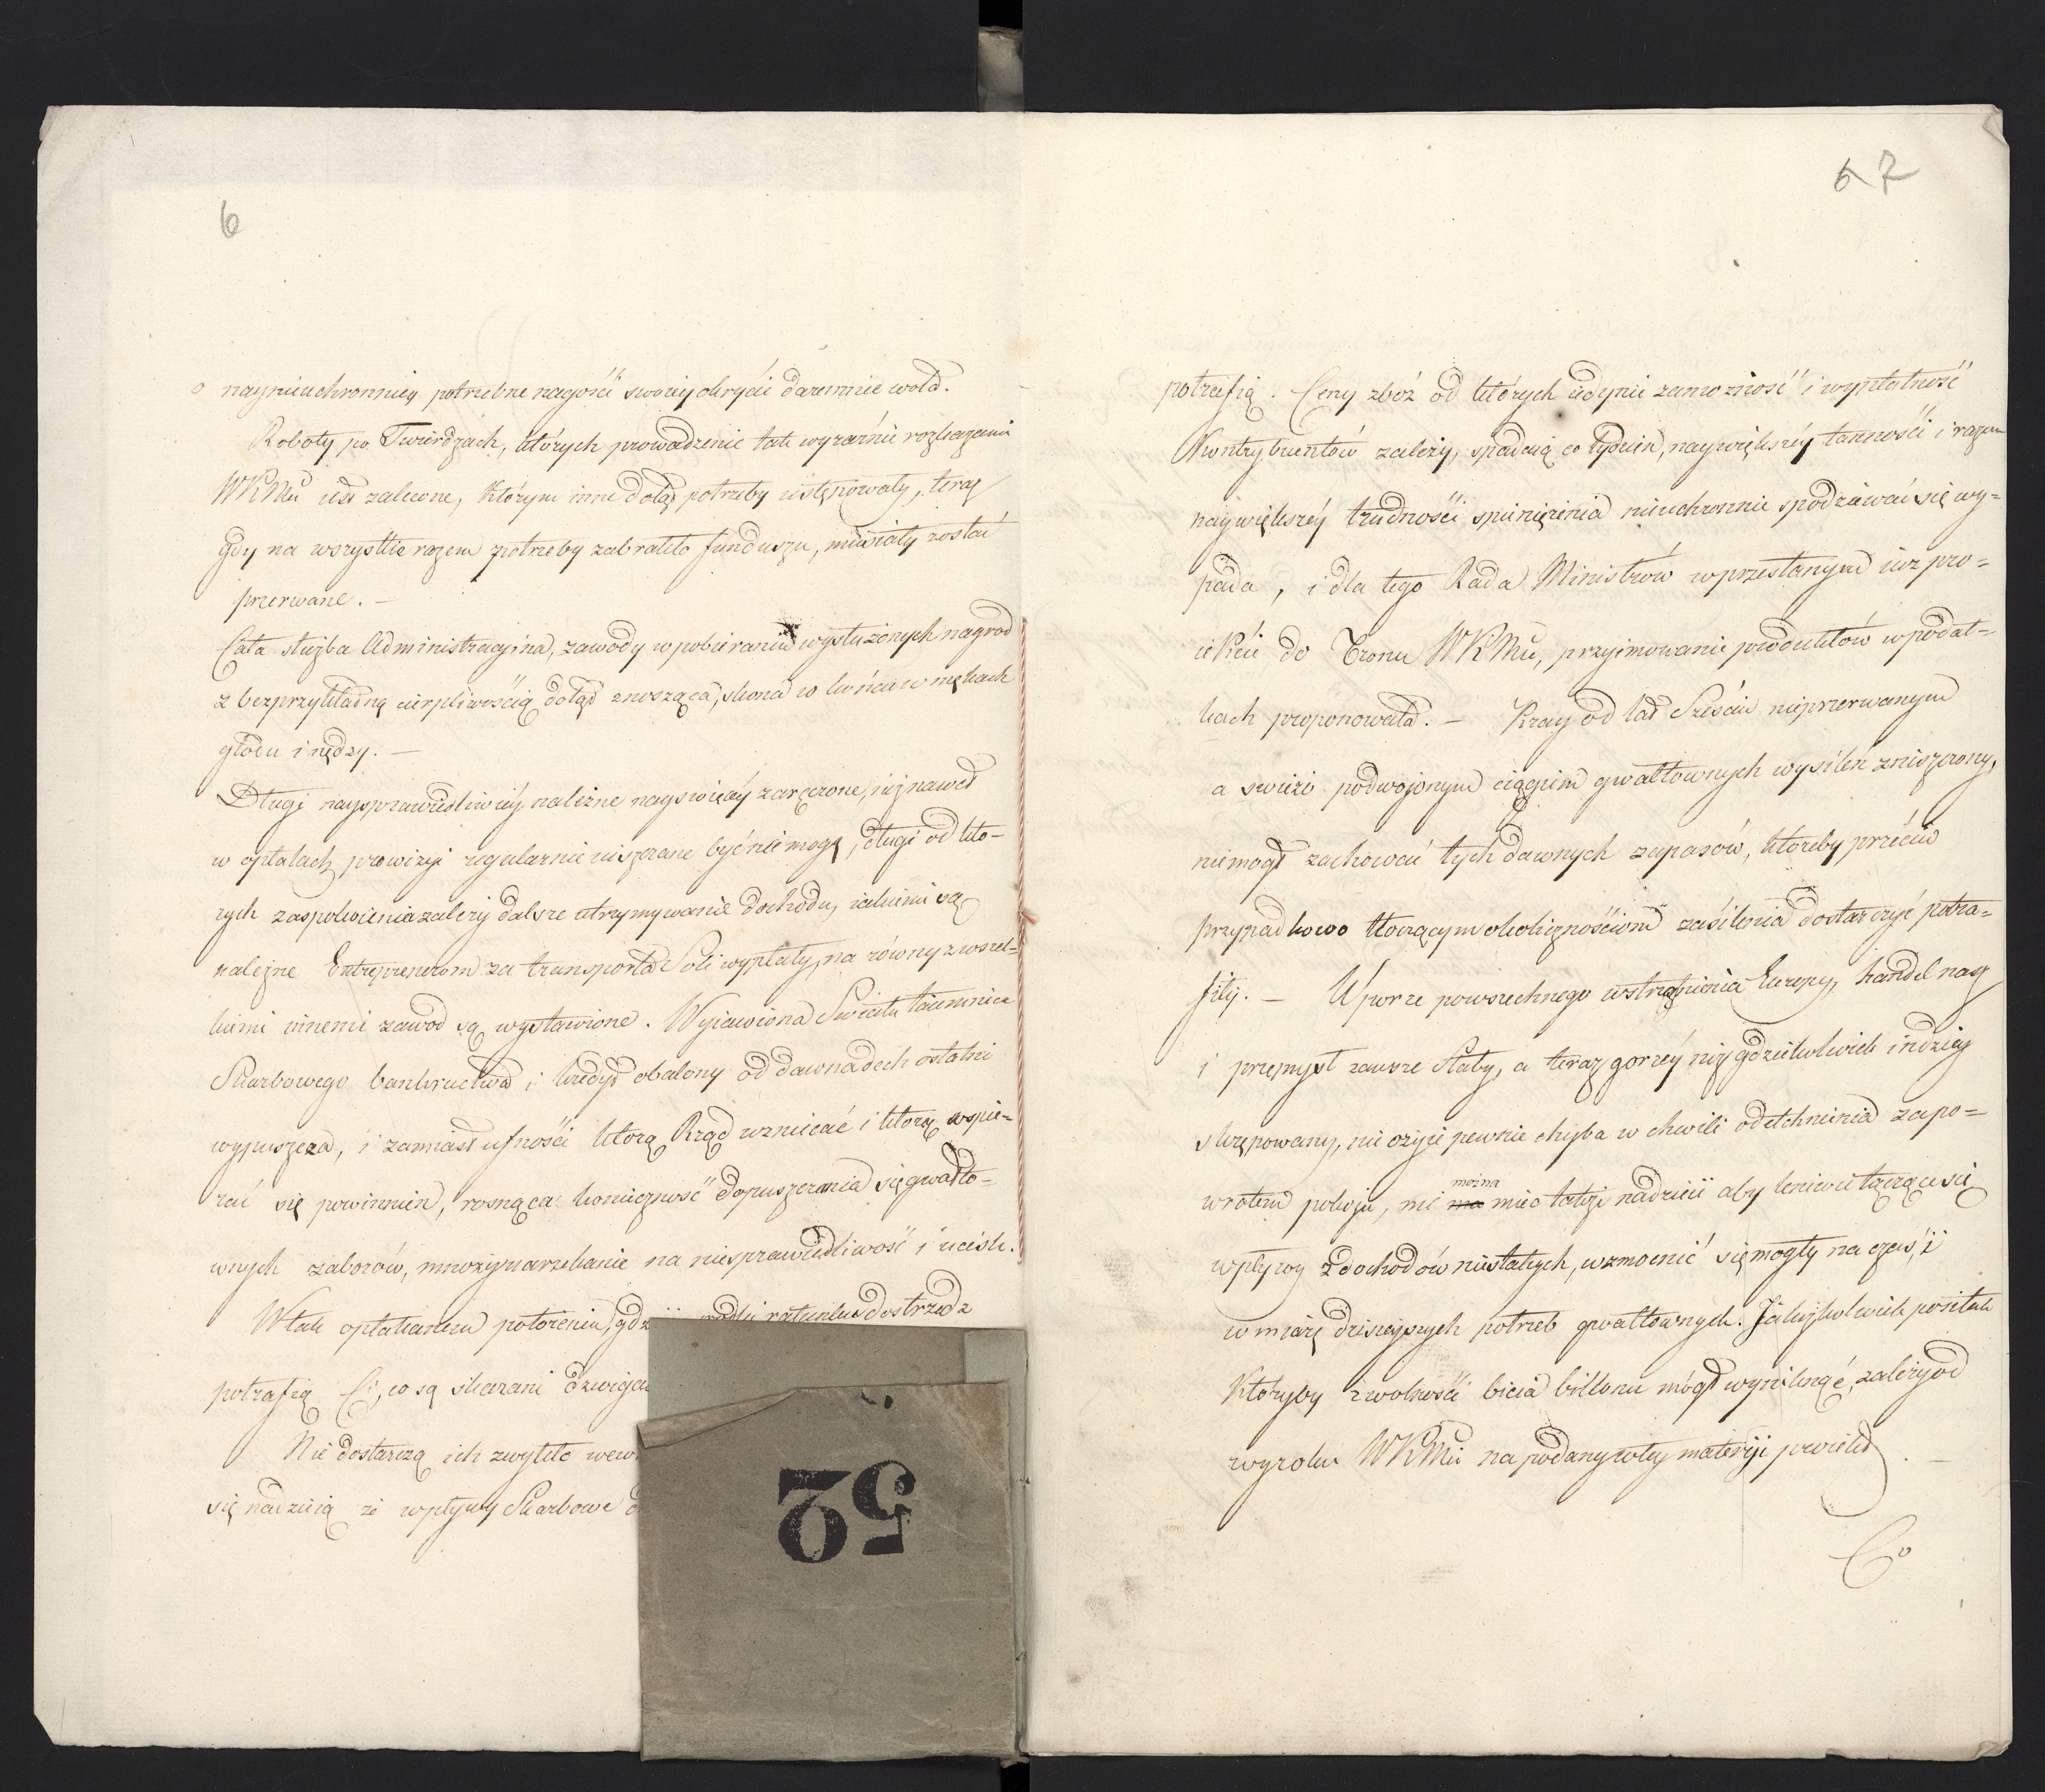 6
o naynieuchronniey potrzebne nagości swoiey okrycie daremnie woła.
Roboty po Twierdzach, których prowadzenie tak wyraźnie rozkazami
WKMci iest zalecone, którym inne dotąd potrzeby ustępowały, teraz
gdy na wszystkie razem potrzeby zabrakło funduszu, musiały zostać
przerwane. –
Cała służba Administracyina, zawody w pobieraniu wysłużonych nagrod
z bezprzykładną cierpliwością dotąd znosząca, skona w końcu w mękach
głodu i nędzy. –
Długi naysprawiedliwiéy należne nayswięciéy zaręczone, iż nawet
w opłatach prowizyi regularnie uiszczane być nie mogą, długi od któ-
rych zaspokoienia zależy dalsze utrzymywanie dochodu, iakiemi są
należne Entreprenerom za transporta Soli wypłaty, na równy z wszel-
kiemi innemi zawod są wystawione. Wyiawiona Swiatu taiemnica
Skarbowego bankructwa i kredyt obalony od dawna dech ostatni
wypuszcza, i zamiast ufności którą Rząd wzniecać i którą wspie-
rać się powinien, rosnąca konieczność dopuszczania się gwałto-
wnych zaborów, mnoży narzekanie na niesprawiedliwość i ucisk.
W tak opłakanem położeniu, gdz ratunku dostrzedz
potrafią Ci, co są skazani dzwigać
Nie dostarczą ich zwykłe wew
się nadzieią że wpływy Skarbowe
52
6 7
potrafią. Ceny zbóż od których iedynie zamożność i wypłatność
Kontrybuentów zależy, spadaią co tydzień, naywiększéy tanności i razem
naywiększéy trudności spieniężenia nieuchronnie spodziewać się wy-
pada, i dla tego Rada Ministrów w przesłanym iuż pro-
iekcie do Tronu WKMci, przyimowanie produktów w podat-
kach proponowała. – Kray od lat Sześciu nieprzerwanym
a swieżo podwojonym ciągiem gwałtownych wysileń zniszczony,
niemogł zachować tych dawnych zapasów, któreby przeciw
przypadkowo tłoczącym okolicznościom zasilenia dostarczyć potra-
fiły. – W porze powszechnego wstrząśnienia Europy, handel nasz
i przemysł zawsze słaby, a teraz gorzéy niż gdziekolwiek indziey
skrępowany, nie ożyie pewnie chyba w chwili odetchnienia za po-
wrotem pokoju, nie ma można miec także nadzieii aby leniwie łączące się
wpływy z dochodów niestałych, wzmocnić się mogły na czas, i
w miarę dzisieyszych potrzeb gwałtownych. Jakiżkolwiek posiłek
któryby z wolności bicia billonu mógł wyniknąć, zależy od
wyroku WKMci na podany w téy materyi proiekt. –
Co